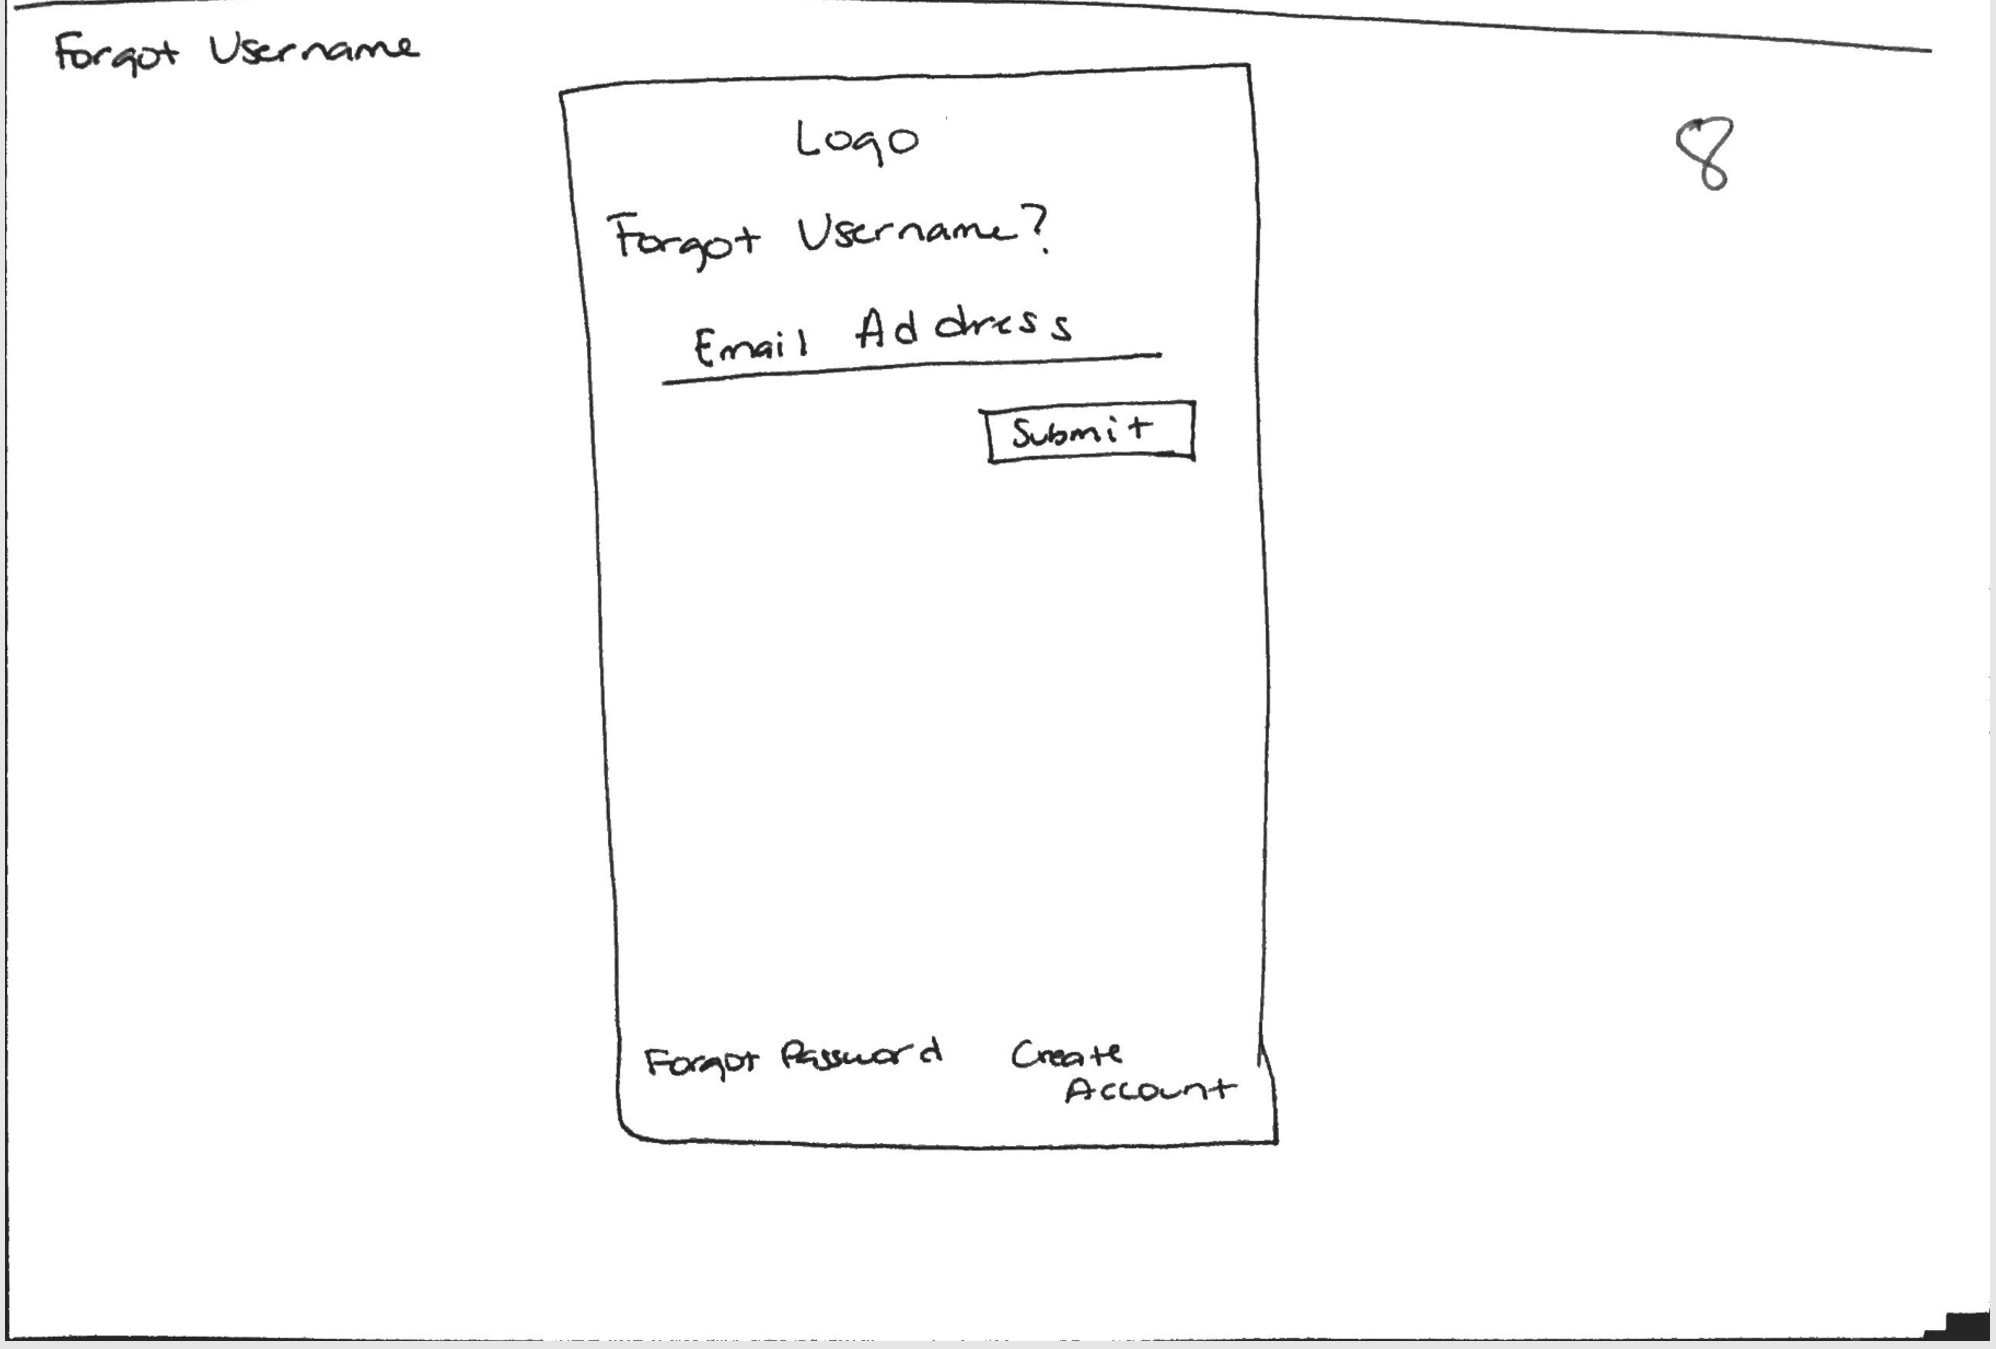 Forgot Username
8
Logo
Forgot Username?
Email Address
Submit
Forgot Password
Create
Account